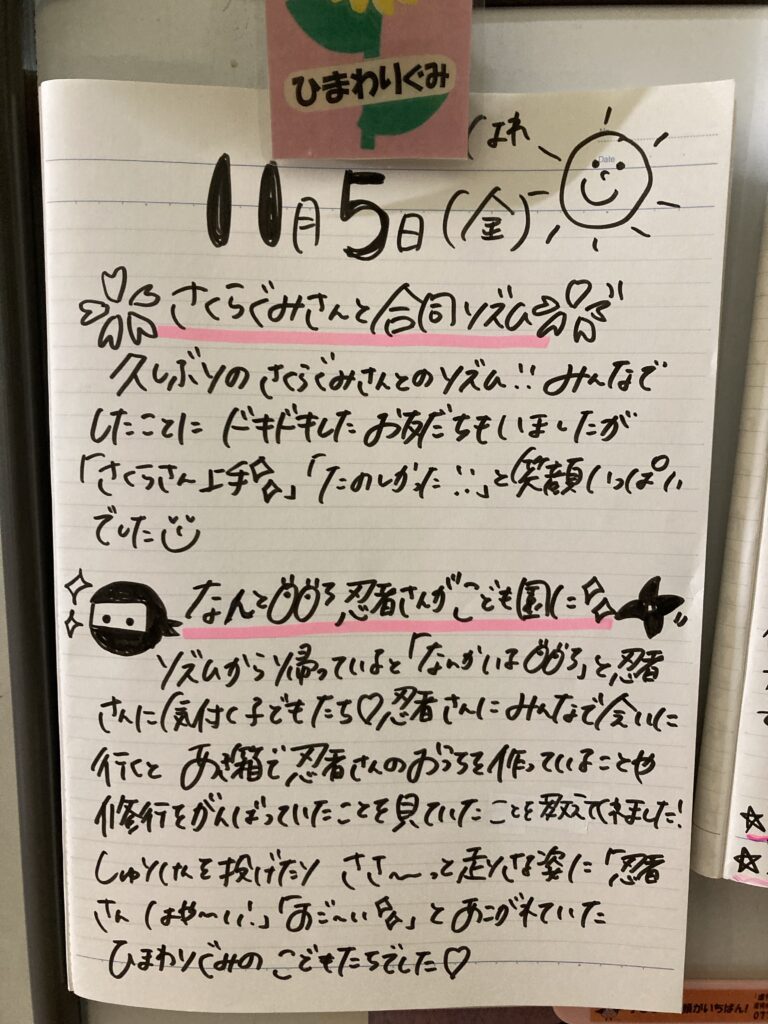 ひまわりぐみ
はれ
Date
11月5日(金)
さくらぐみさんと合同リズム
久しぶりの さくらぐみさんとのリズム!! みんなで
したことに ドキドキした お友だちもいましたが
「さくらさん上手」「たのしかった!!」と笑顔いっぱい
でした
なんと 忍者さんがこども園に
リズムから帰っていると「なんかいる」と忍者
さんに気付く子どもたち♡忍者さんにみんなで会いに
行くと あき箱で忍者さんのおうちを作っていることや
修行をがんばっていたことを見ていた ことを教えてくれました!
しゅりけんを投げたり ささ〜っと走りさる姿に「忍者
さん はや〜い!」「すご〜い」と あこがれていた
ひまわりぐみの こどもたちでした♡
顔がいちばん!